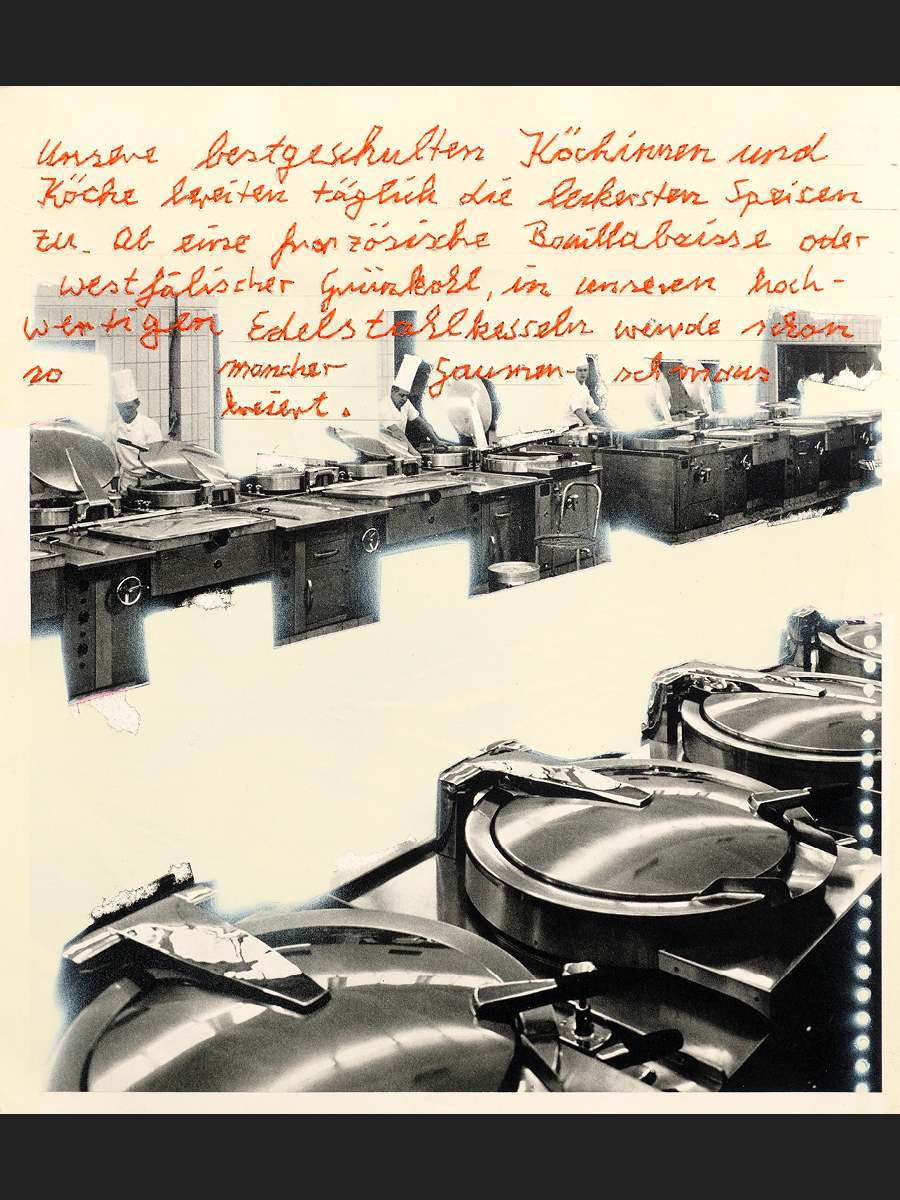 Unsere bestgeschulten Köchinnen und
Köche bereiten täglich die leckersten Speisen
zu. Ob eine französische Bouillabaisse oder
westfälischer Grünkohl, in unseren hoch-
wertigen Edelstahlkesseln wurde schon
so mancher Gaumen-schmaus
kreiert.